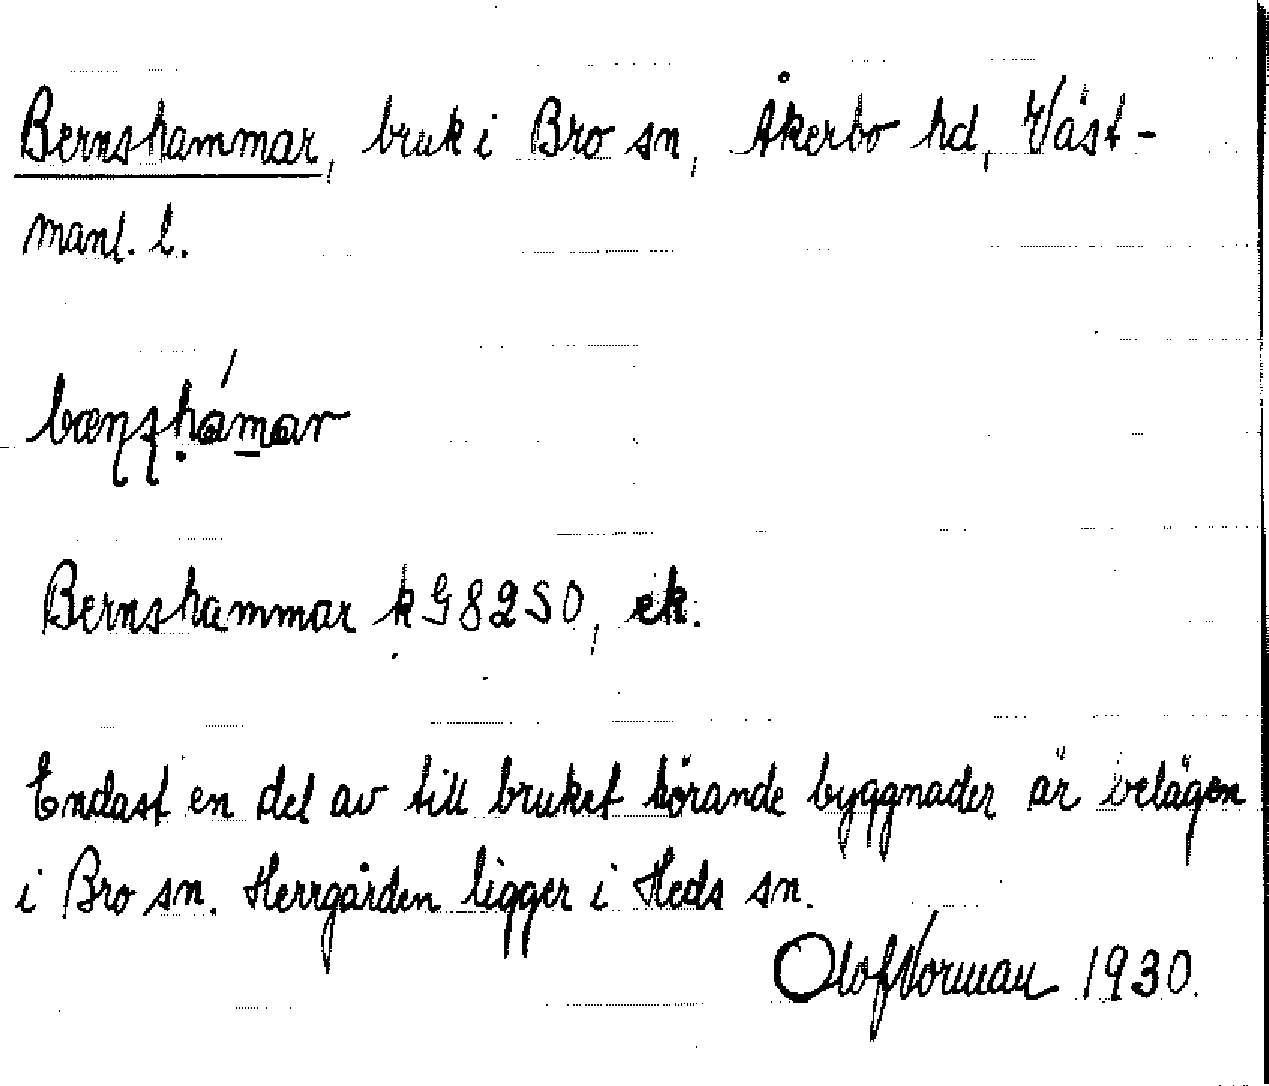 Bernshammar, bruk i Bro sn, Åkerbo hd, Väst-
manl. l.
Bernshammar k G 8250, ek.
Endast en del av till bruket hörande byggnader är belägen
i Bro sn. Herrgården ligger i Heds sn.
Olof Norman 1930.